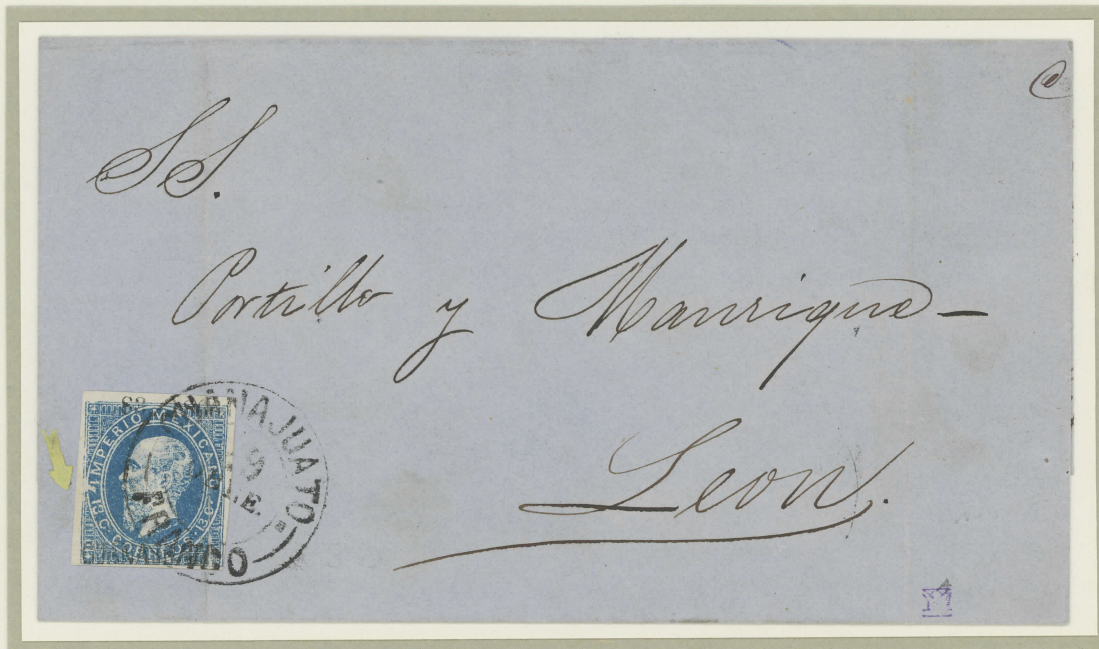 SS.
Portillo y Manrique
Leon.
IMPERIO MEXICANO
13 C.
GUANAJUATO
9
FRANCO